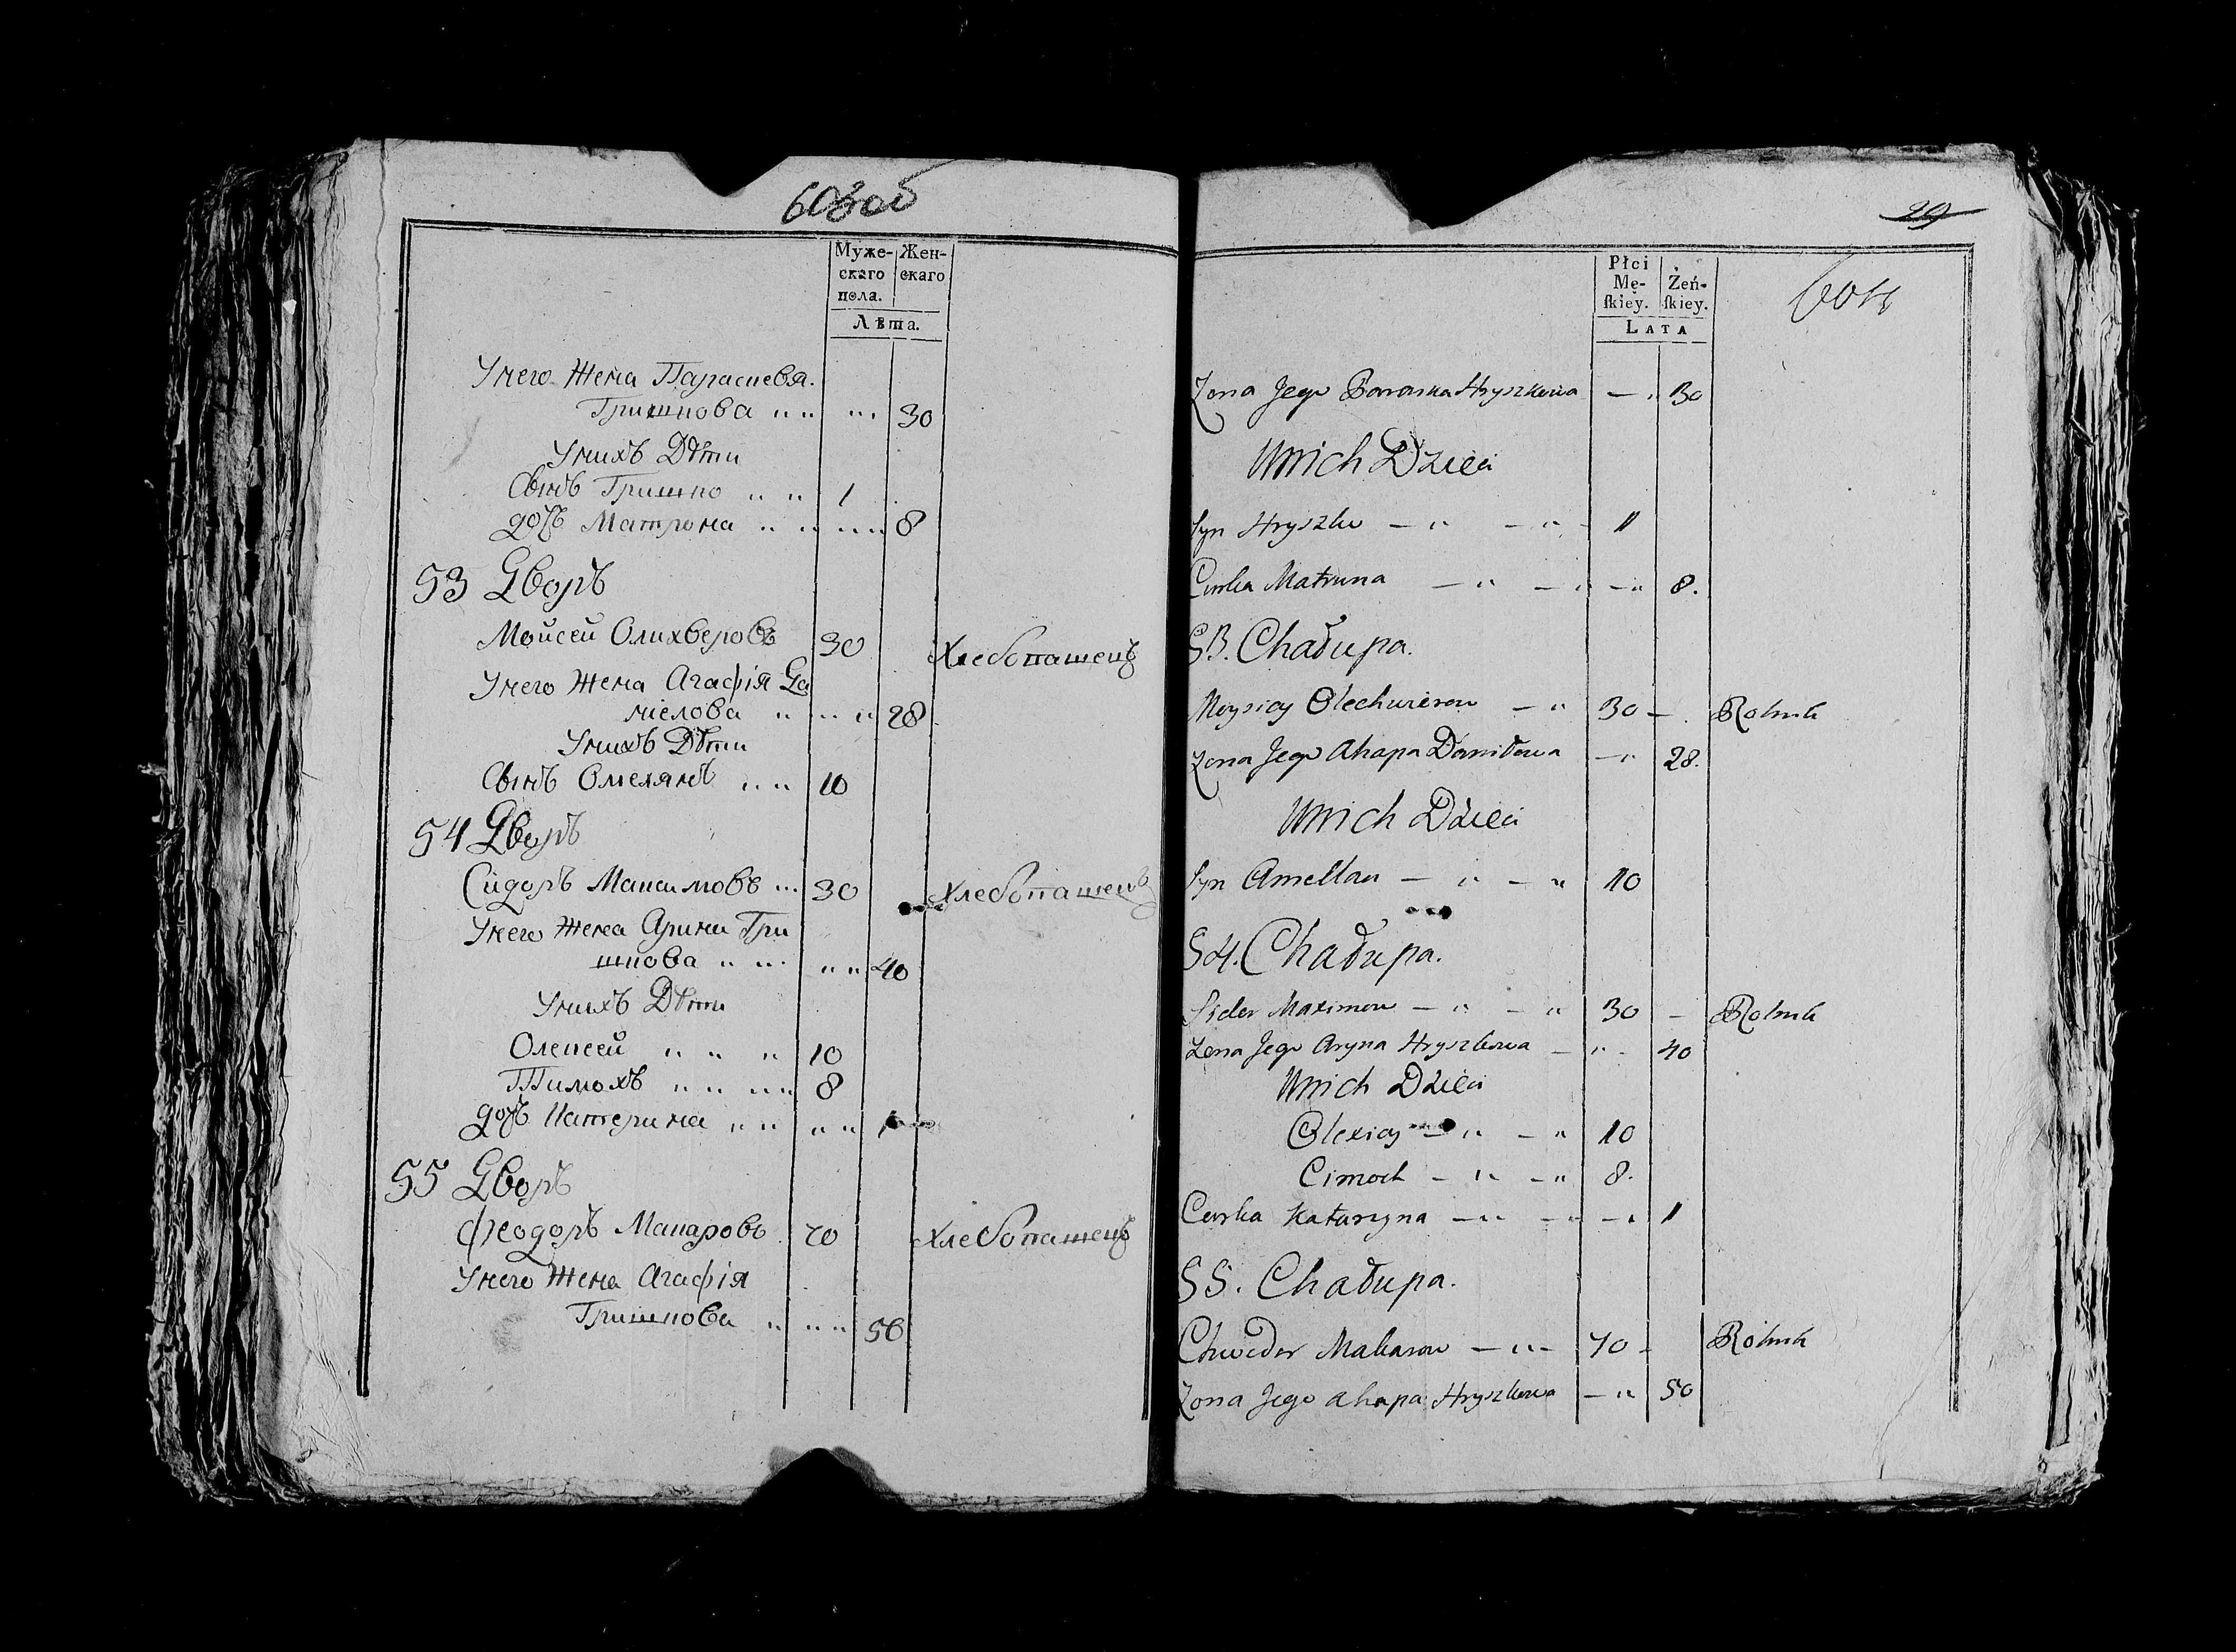 603об
Муже-
скаго
пола.
Жен-
скаго
Лѣта.
У него Жена Параскевя.
Гришкова " " " " 30
У нихъ Дѣти
Сынъ Гришко " " 1
дочь Матрона " " " " 8
53 Дворъ
Мойсей Олихверовъ 30 Хлебопашецъ
У него Жена Агафія Да
ніелова " " " 28
У нихъ Дѣти
Сынъ Омелянъ " " 10
54 Дворъ
Сидоръ Максимовъ " 30 Хлебопашецъ
У него Жена Арина Гри
шкова " " " " 40
У нихъ Дѣти
Олексей " " " 10
Тимохъ " " " " 8
дочь Катерина " " " " 1
55 Дворъ
Феодоръ Макаровъ 70 Хлебопашецъ
У него Жена Агафія
Гришкова " " " 50
29
604
Płci
Mę-
skiey.
Żeń-
skiey.
LATA
Zona Jego Paraska Hryszkowa — " 30
U nich Dzieci
Syn Hryszko — " — " 1
Curka Matruna — " — " — " 8.
53. Chałupa.
Moysiey Olechwierow — " 30 — Rolnik
Zona Jego Ahapa Daniłowa — " 28.
U nich Dzieci
Syn Amellan — " — " 10
54. Chałupa.
Sidor Maximow — " — " 30 — Rolnik
Zona Jego Aryna Hryszkowa — " 40
U nich Dzieci
Olexiey — " — " 10
Cimoch — " — " 8.
Curka Katarzyna — " — " — " 1
55. Chałupa.
Chwedor Makarow — " — 70 — Rolnik
Zona Jego Ahapa Hryszkowa — " 50